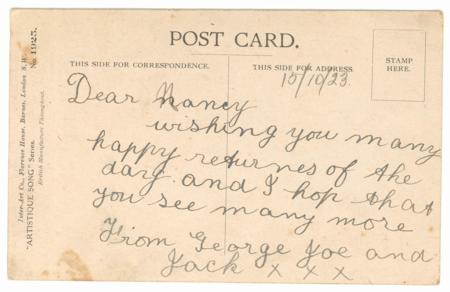 POST CARD.
THIS SIDE FOR CORRESPONDENCE.
THIS SIDE FOR ADDRESS
STAMP
HERE.
15/10/23.
Dear Nancy
wishing you many
happy returnes of the
day and I hop that
you see many more
From George Joe and
Jack x x x
Inter-Art Co., Florence House, Barnes, London S.W.
"ARTISTIQUE SONG" Series. No. 1925.
British Manufacture Throughout.